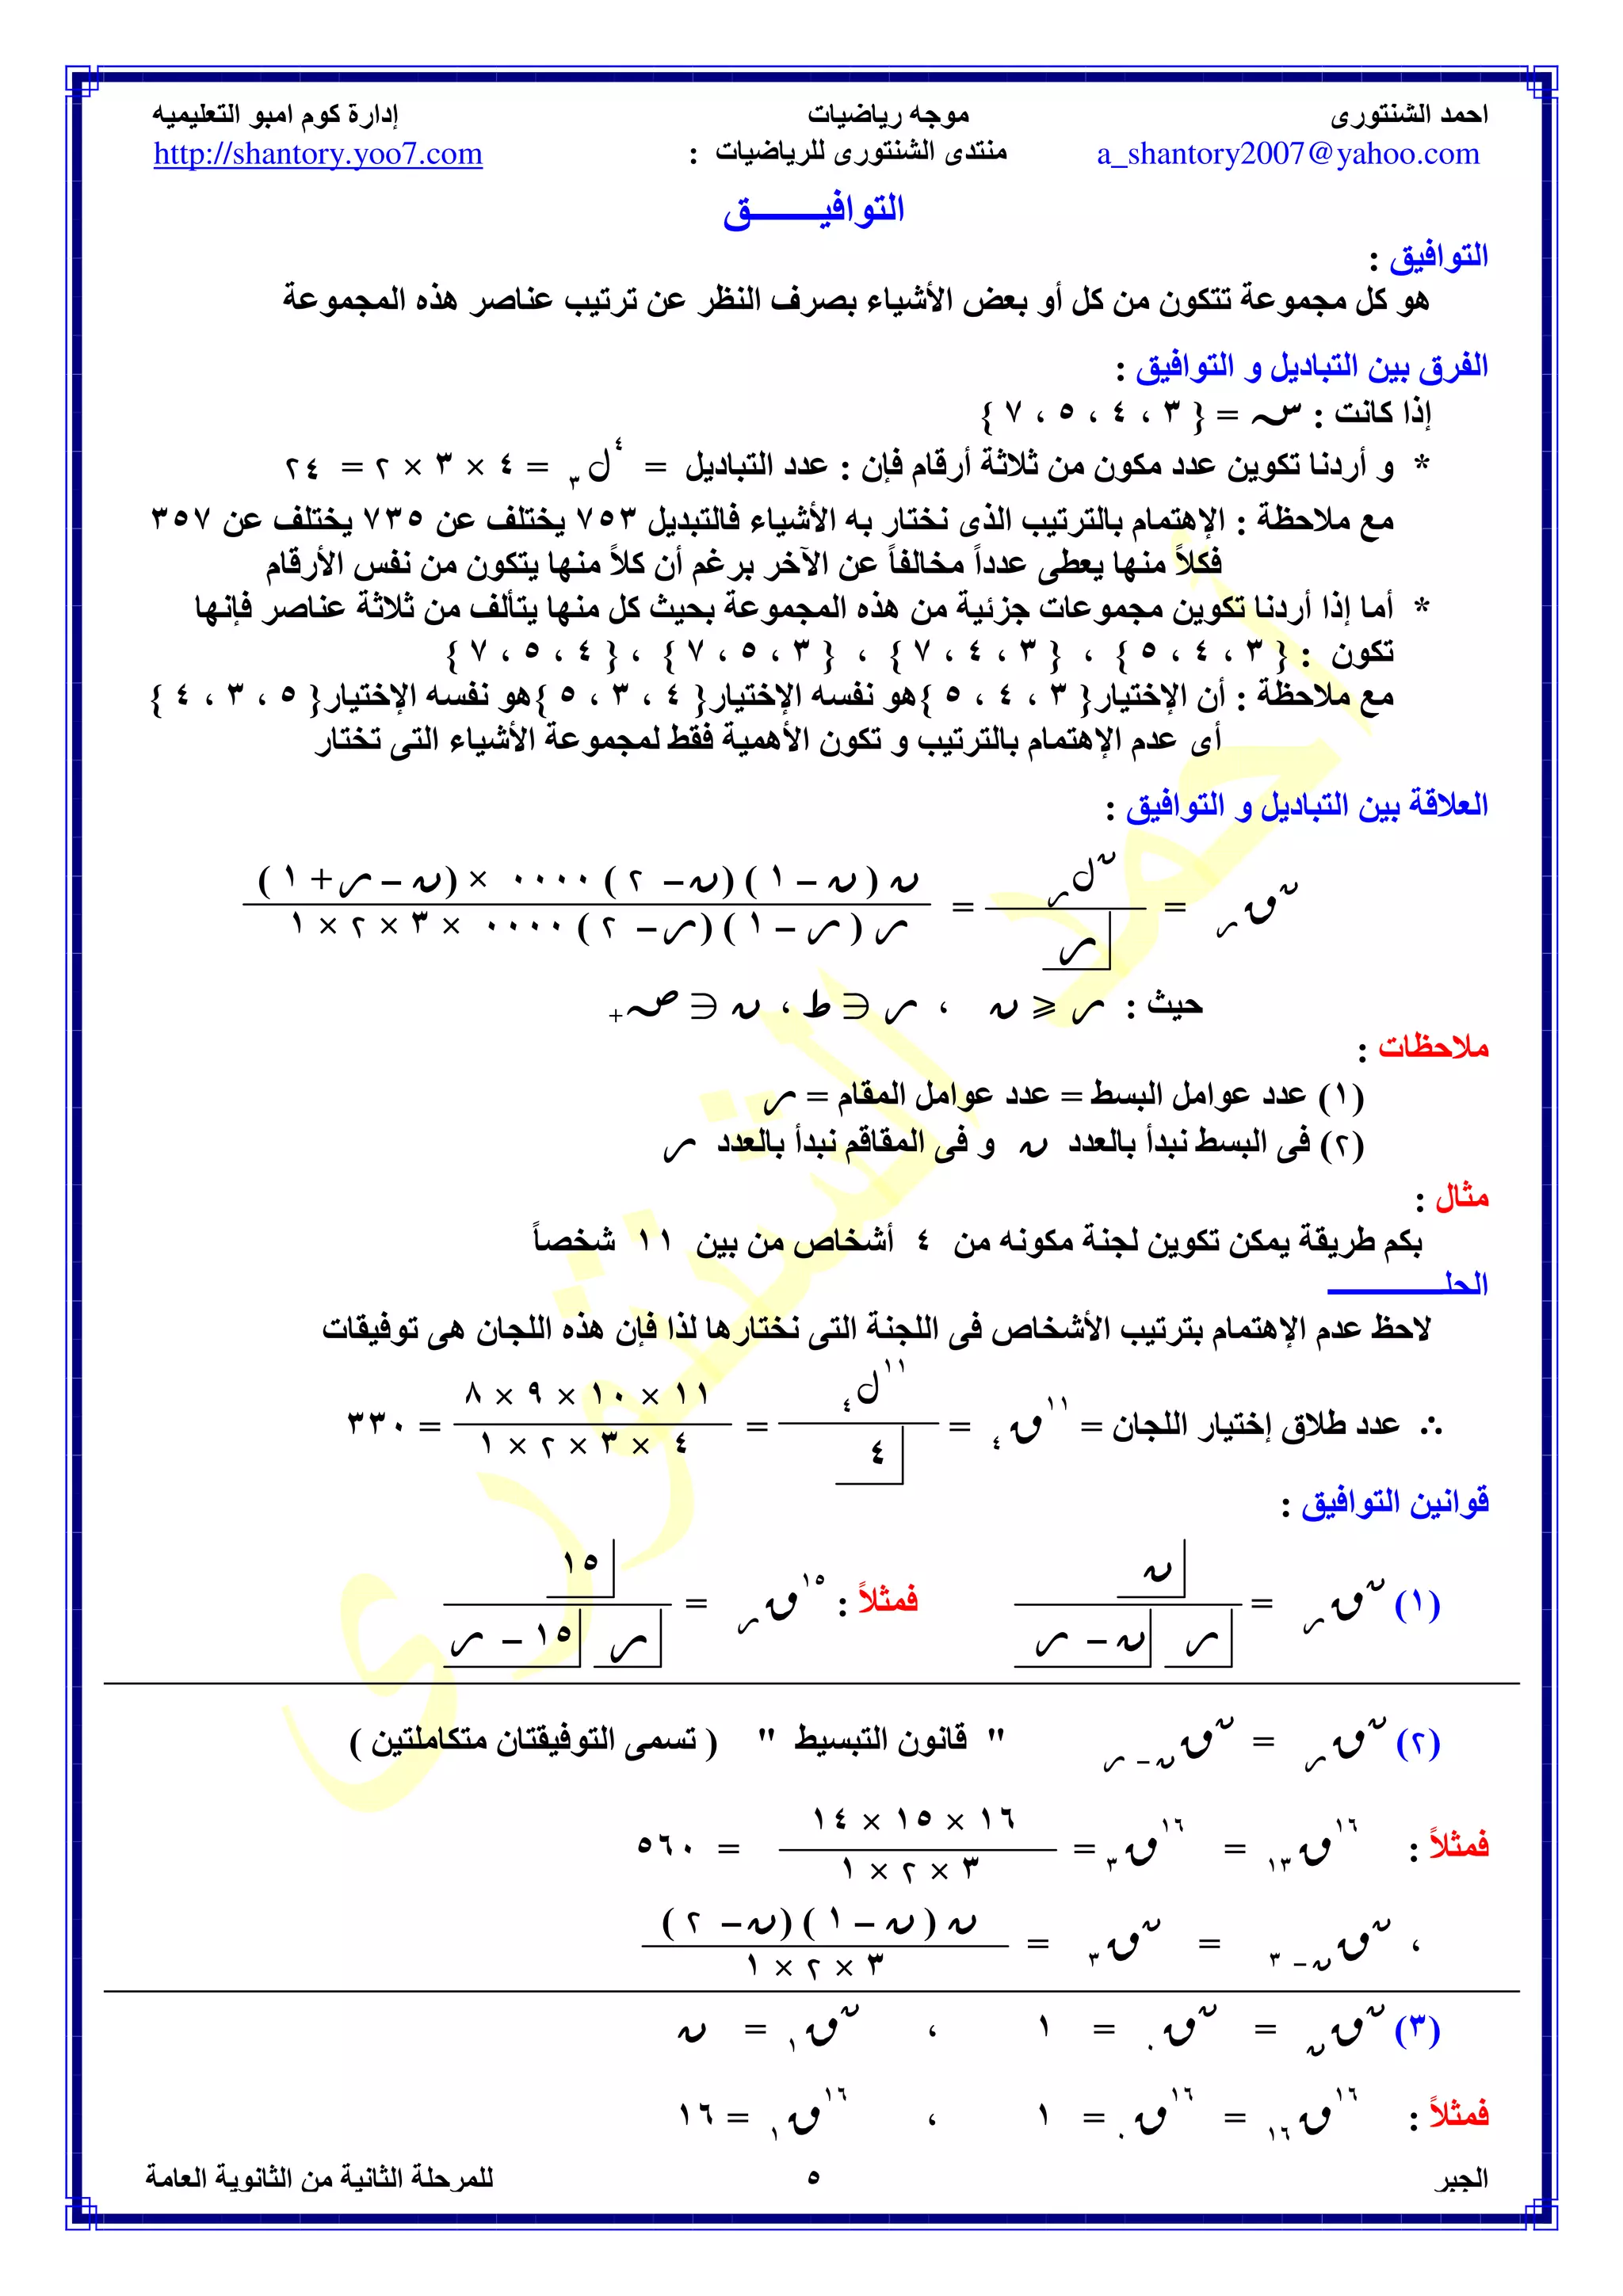 احمد الشنتورى موجه رياضيات إدارة كوم امبو التعليميه
a_shantory2007@yahoo.com منتدى الشنتورى للرياضيات : http://shantory.yoo7.com
التوافيـــــــق
التوافيق :
هو كل مجموعة تتكون من كل أو بعض الأشياء بصرف النظر عن ترتيب عناصر هذه المجموعة
الفرق بين التباديل و التوافيق :
إذا كانت : سـ = { ٣ ، ٤ ، ٥ ، ٧ }
* و أردنا تكوين عدد مكون من ثلاثة أرقام فإن : عدد التباديل = ⁴ل₃ = ٤ × ٣ × ٢ = ٢٤
مع ملاحظة : الإهتمام بالترتيب الذى نختار به الأشياء فالتبديل ٧٥٣ يختلف عن ٧٣٥ يختلف عن ٣٥٧
فكلاً منها يعطى عدداً مخالفاً عن الآخر برغم أن كلاً منها يتكون من نفس الأرقام
* أما إذا أردنا تكوين مجموعات جزئية من هذه المجموعة بحيث كل منها يتألف من ثلاثة عناصر فإنها
تكون : { ٣ ، ٤ ، ٥ } ، { ٣ ، ٤ ، ٧ } ، { ٣ ، ٥ ، ٧ } ، { ٤ ، ٥ ، ٧ }
مع ملاحظة : أن الإختيار{ ٣ ، ٤ ، ٥ }هو نفسه الإختيار{ ٤ ، ٣ ، ٥ }هو نفسه الإختيار{ ٥ ، ٣ ، ٤ }
أى عدم الإهتمام بالترتيب و تكون الأهمية فقط لمجموعة الأشياء التى تختار
العلاقة بين التباديل و التوافيق :
ن ق ر = ن ل ر / ر = ن ( ن – ١ ) ( ن – ٢ ) ٠٠٠٠ × ( ن – ر + ١ ) / ر ( ر – ١ ) ( ر – ٢ ) ٠٠٠٠ × ٣ × ٢ × ١
حيث : ر ⩽ ن ، ر ∋ ط ، ن ∋ صـ+
ملاحظات :
(١) عدد عوامل البسط = عدد عوامل المقام = ر
(٢) فى البسط نبدأ بالعدد ن و فى المقاقم نبدأ بالعدد ر
مثال :
بكم طريقة يمكن تكوين لجنة مكونه من ٤ أشخاص من بين ١١ شخصاً
الحلــــــــــــــ
لاحظ عدم الإهتمام بترتيب الأشخاص فى اللجنة التى نختارها لذا فإن هذه اللجان هى توفيقات
∴ عدد طلاق إختيار اللجان = ¹¹ق₄ = ¹¹ل₄ / ٤ = ١١ × ١٠ × ٩ × ٨ / ٤ × ٣ × ٢ × ١ = ٣٣٠
قوانين التوافيق :
(١) ن ق ر = ن / ر ن – ر فمثلاً : ¹⁵ق ر = ١٥ / ر ١٥ – ر
(٢) ن ق ر = ن ق ن – ر " قانون التبسيط " ( تسمى التوفيقتان متكاملتين )
فمثلاً : ¹⁶ق₁₃ = ¹⁶ق₃ = ١٦ × ١٥ × ١٤ / ٣ × ٢ × ١ = ٥٦٠
، ن ق ن – ٣ = ن ق ٣ = ن ( ن – ١ ) ( ن – ٢ ) / ٣ × ٢ × ١
(٣) ن ق ن = ن ق ٠ = ١ ، ن ق ١ = ن
فمثلاً : ¹⁶ق₁₆ = ¹⁶ق₀ = ١ ، ¹⁶ق₁ = ١٦
الجبر ٥ للمرحلة الثانية من الثانوية العامة
أحمد الشنتورى